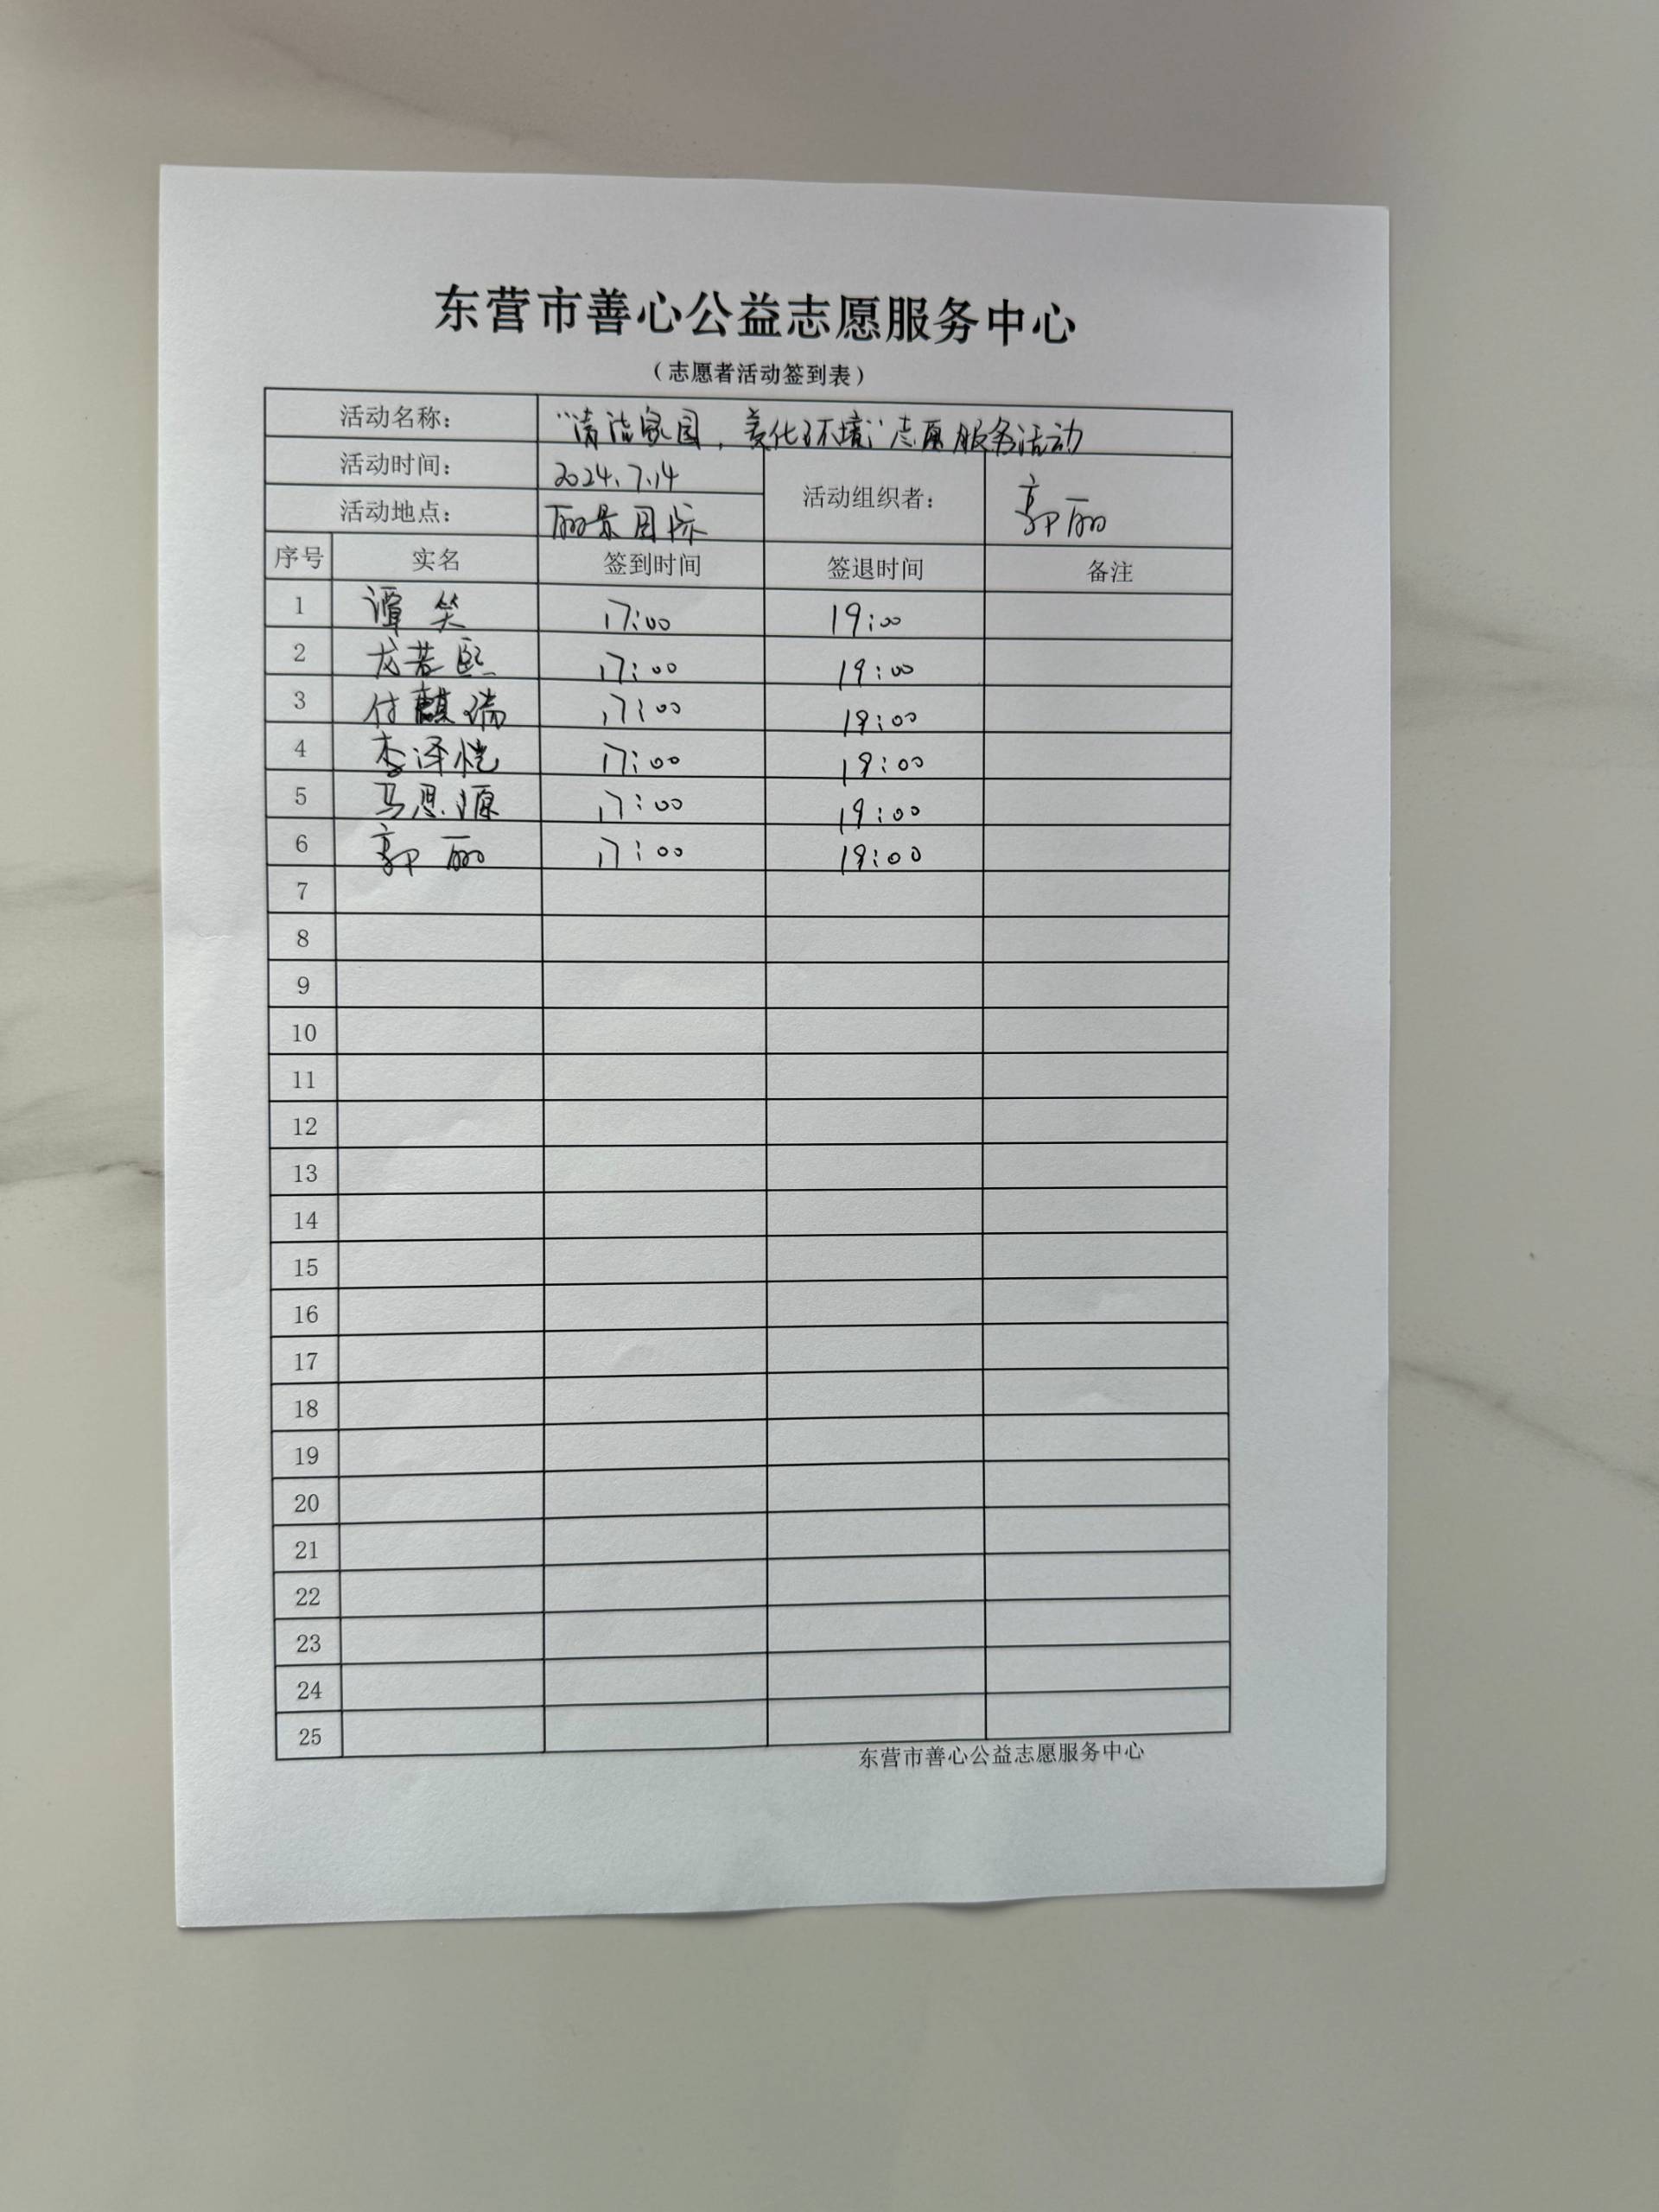 东营市善心公益志愿服务中心
（志愿者活动签到表）
活动名称： “清洁家园，美化环境”志愿服务活动
活动时间： 2024.7.14
活动组织者： 郭丽
活动地点： 丽景国际
序号 实名 签到时间 签退时间 备注
1 谭笑 17:00 19:00
2 龙若熙 17:00 19:00
3 付麒瑞 17:00 19:00
4 李泽恺 17:00 19:00
5 马思源 17:00 19:00
6 郭丽 17:00 19:00
7
8
9
10
11
12
13
14
15
16
17
18
19
20
21
22
23
24
25
东营市善心公益志愿服务中心